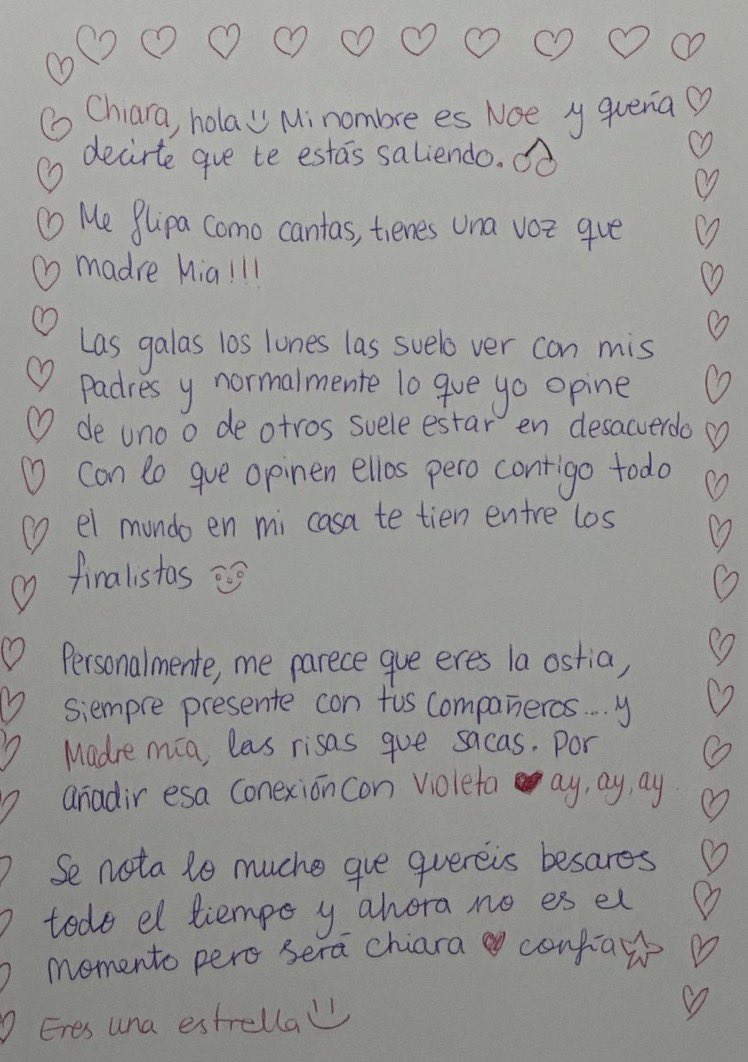 Chiara, hola Mi nombre es Noe y quería
decirte que te estás saliendo.
Me flipa como cantas, tienes una voz que
madre Mia!!!
Las galas los lunes las suelo ver con mis
padres y normalmente lo que yo opine
de uno o de otros suele estar en desacuerdo
con lo que opinen ellos pero contigo todo
el mundo en mi casa te tien entre los
finalistas
Personalmente, me parece que eres la ostia,
siempre presente con tus compañeros... y
Madre mía, las risas que sacas. Por
añadir esa conexión con Violeta ♥ ay, ay, ay.
Se nota lo mucho que queréis besaros
todo el tiempo y ahora no es el
momento pero será chiara ♥ confía ☆
Eres una estrella